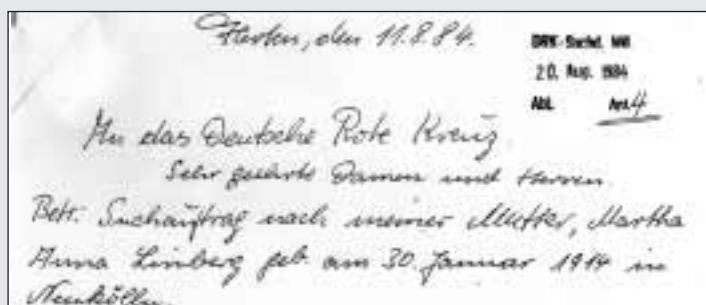 Herten, den 11.8.84.
DRK-Suchd. MÜ
20. Aug. 1984
Abt. Anl. 4
An das Deutsche Rote Kreuz
Sehr geehrte Damen und Herren.
Betr. Suchauftrag nach meiner Mutter, Martha
Anna Limberg geb. am 30. Januar 1914 in
Neukölln